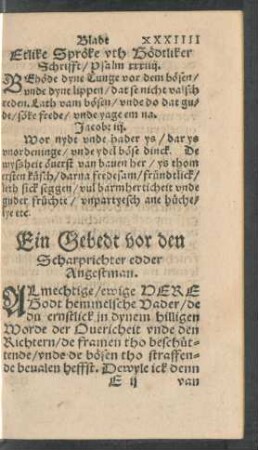 Bladt XXXIIII
Etlike Spröke vth Gödtliker
Schrifft / Psalm xxxiiij.
BEhöde dyne Tunge vor dem bösen /
vnde dyne lippen / dat se nicht valsch
reden. Lath vam bösen / vnde do dat gu-
de / söke frede / vnde yage em na.
Jacobi iij.
Wor nydt vnde hader ys / dar ys
vnordeninge / vnde ydel böse dinck. De
wyßheit öuerst van bauen her / ys thom
ersten küsch / darna fredesam / fründtlick /
leth sick seggen / vul barmherticheit vnde
guder früchte / vnpartyesch ane hüche-
lye etc.
Ein Gebedt vor den
Scharprichter edder
Angestman.
ALmechtige / ewige HERE
Godt hemmelsche Vader / de
du ernstlick in dynem hilligen
Worde der Ouericheit vnde den
Richtern / de framen tho beschüt-
tende / vnde de bösen tho straffen-
de beualen heffst. Dewyle ick denn
E ij van